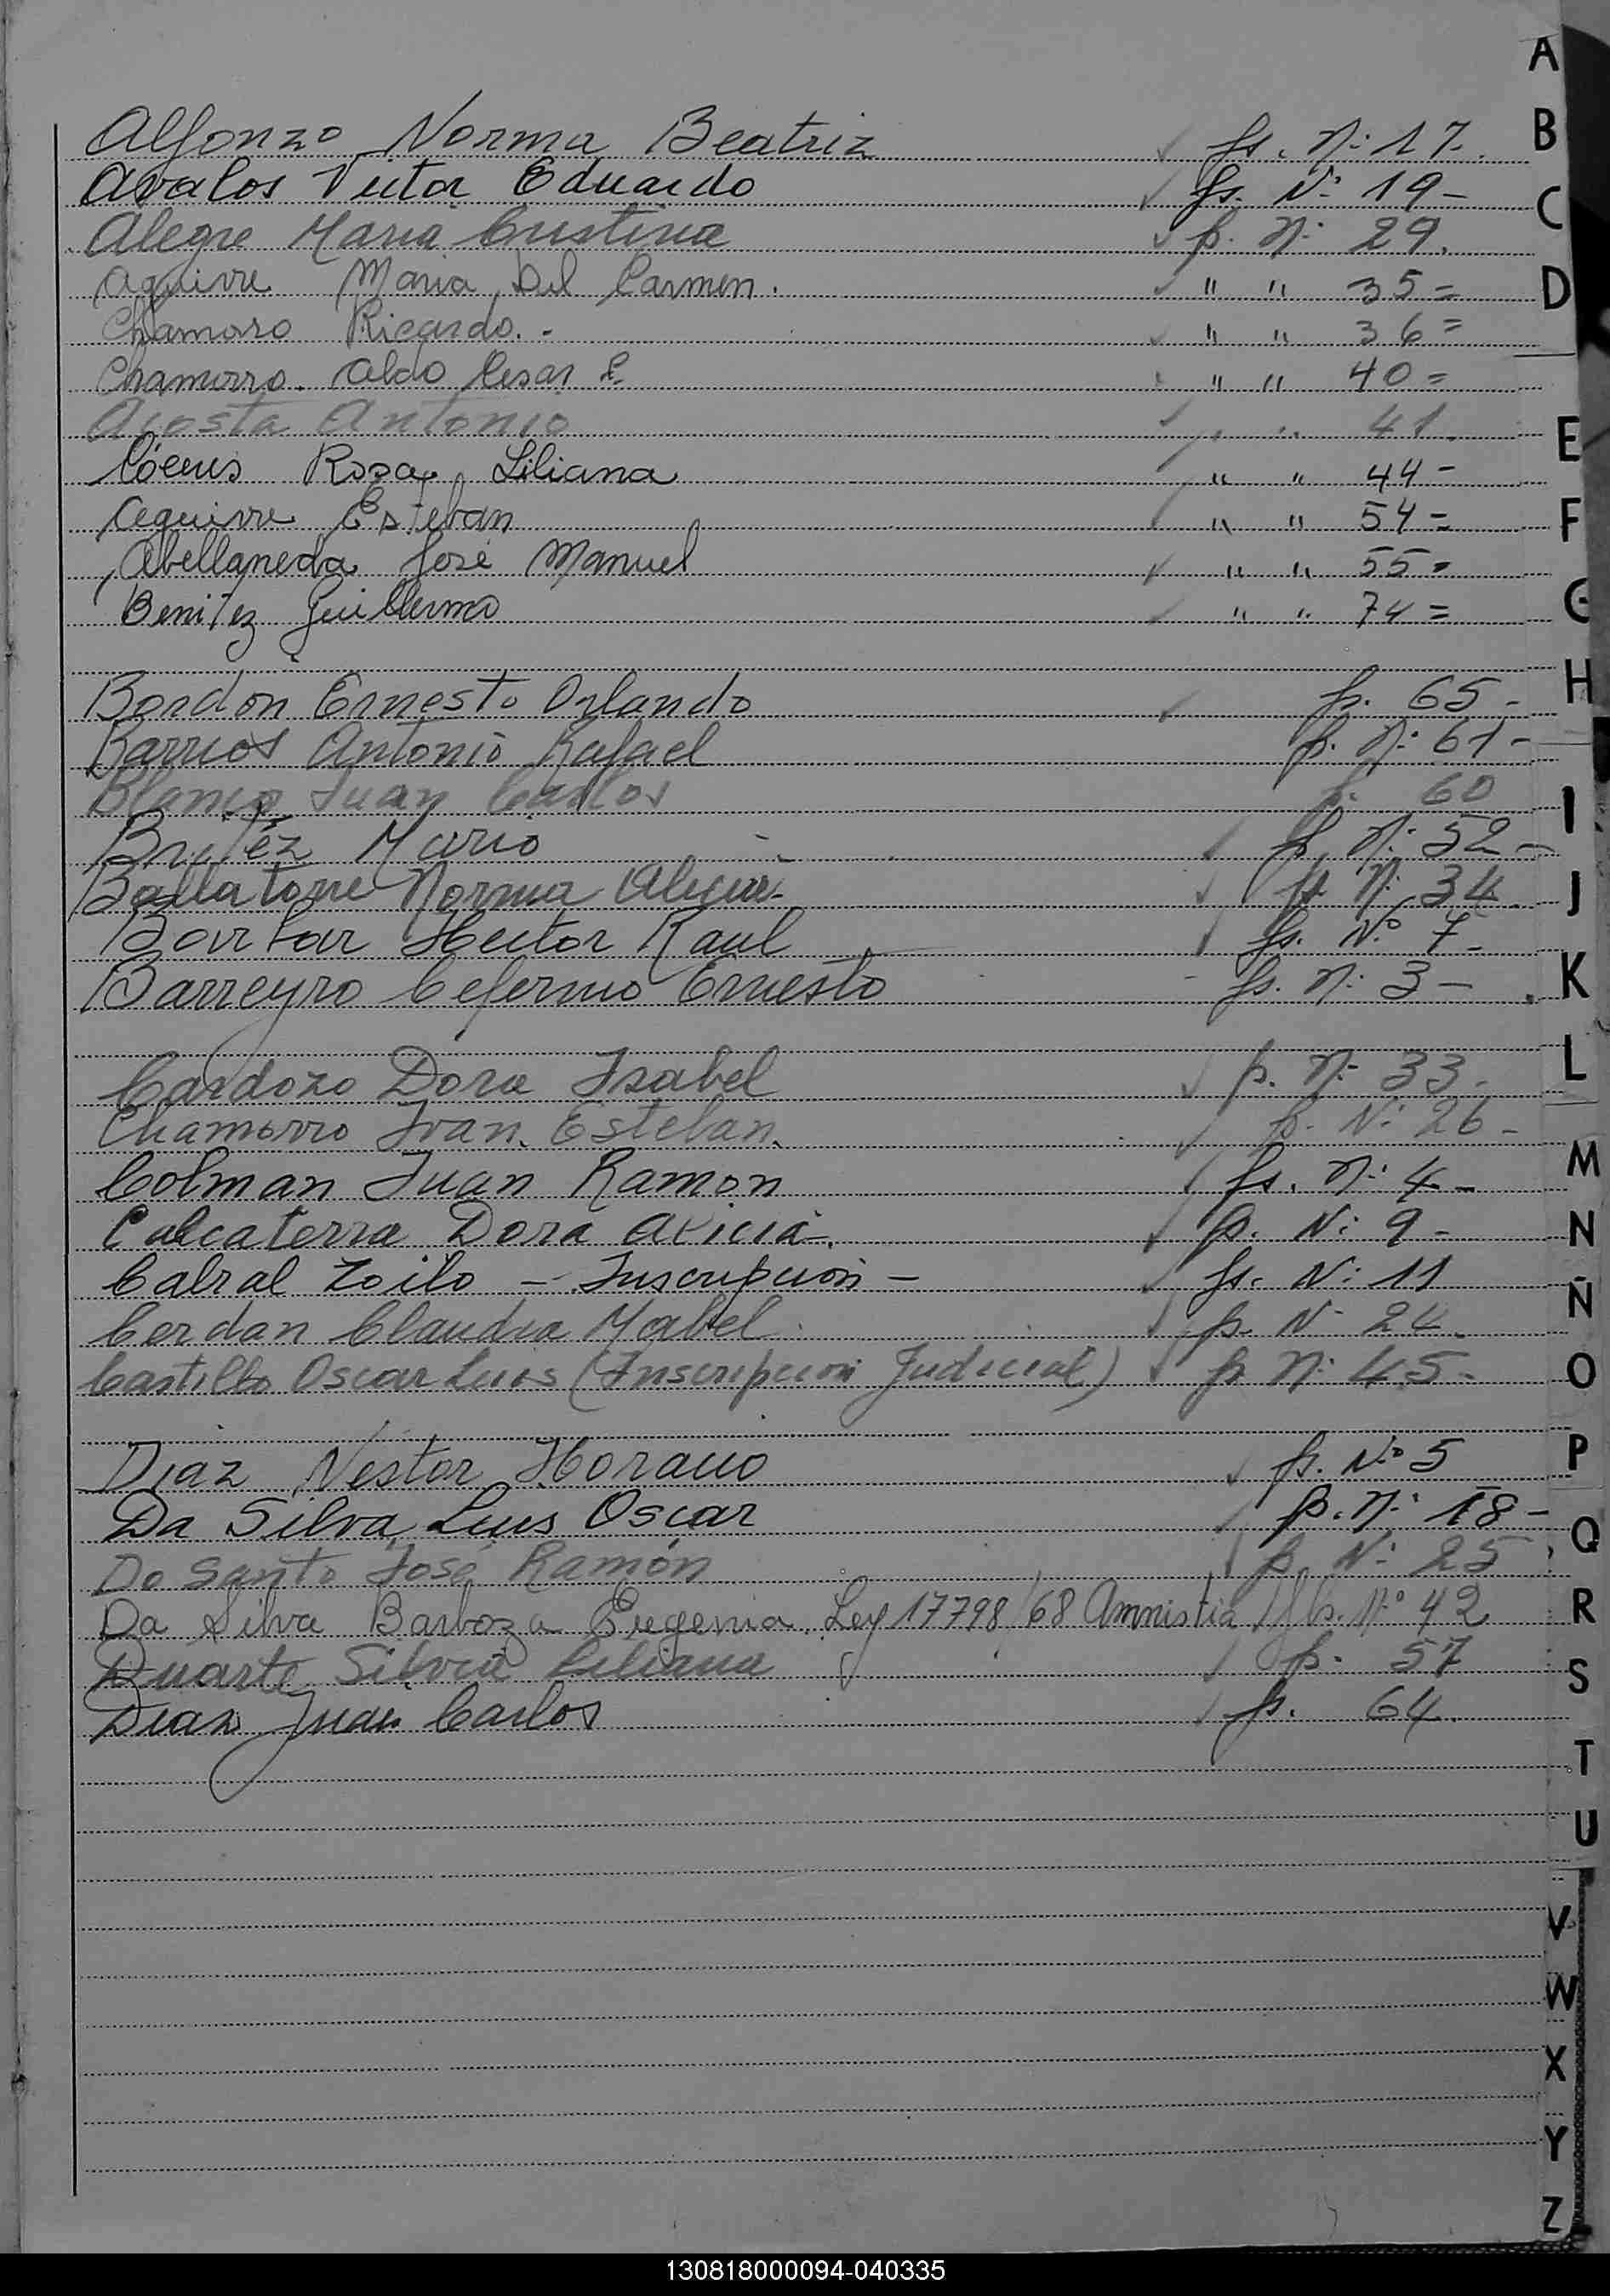 Alfonzo Norma Beatriz ✓ fs. Nº 17.
Avalos Victor Eduardo ✓ fs. Nº 19-
Alegre Maria Cristina ✓ fs. Nº 29.
Aguirre Maria Del Carmen. ✓ " " 35=
Chamoro Ricardo.- ✓ " " 36=
Chamorro. Aldo Cesar " " 40=
Acosta Antonio ✓ " " 41.
Rosa Liliana ✓ " " 44-
Aguirre Esteban ✓ " " 54=
Abellaneda José Manuel ✓ " " 55=
Benitez Guillermo ✓ " " 74=
Bordón Ernesto Orlando ✓ fs. 65-
Barrios Antonio Rafael fs. Nº 61-
Blanco Juan Carlos fs. 60
Britez Mario - ✓ fs Nº 52-
Ballatorre Norma Alicia- ✓ fs Nº 34.
Hector Raul ✓ fs. Nº 7-
Barreyro Ceferino Ernesto - fs. Nº 3-
Cardozo Dora Isabel ✓ fs. Nº 33.
Chamorro Ivan Esteban. ✓ fs. Nº 26-
Colman Juan Ramon ✓ fs. Nº 4-
Calcaterra Dora Alicia-. ✓ fs. Nº 9-
Cabral Zoilo - Inscripción - ✓ fs. Nº 11
Cerdan Claudia Mabel. ✓ fs. Nº 24.
Castillo Oscar Luis (Inscripcion Judicial) ✓ fs Nº 45-
Diaz Nestor Horacio ✓ fs. Nº 5
Da Silva Luis Oscar ✓ fs. Nº 18-
Do Santo José Ramón ✓ fs. Nº 25
Da Silva Barboza Eugenia. Ley 17798/68 Amnistia ✓ fs. Nº 42
Duarte Silvia Liliana ✓ fs. 57
Diaz Juan Carlos ✓ fs. 64.
A
B
C
D
E
F
G
H
I
J
K
L
M
N
Ñ
O
P
Q
R
S
T
U
V
W
X
Y
Z
130818000094-040335